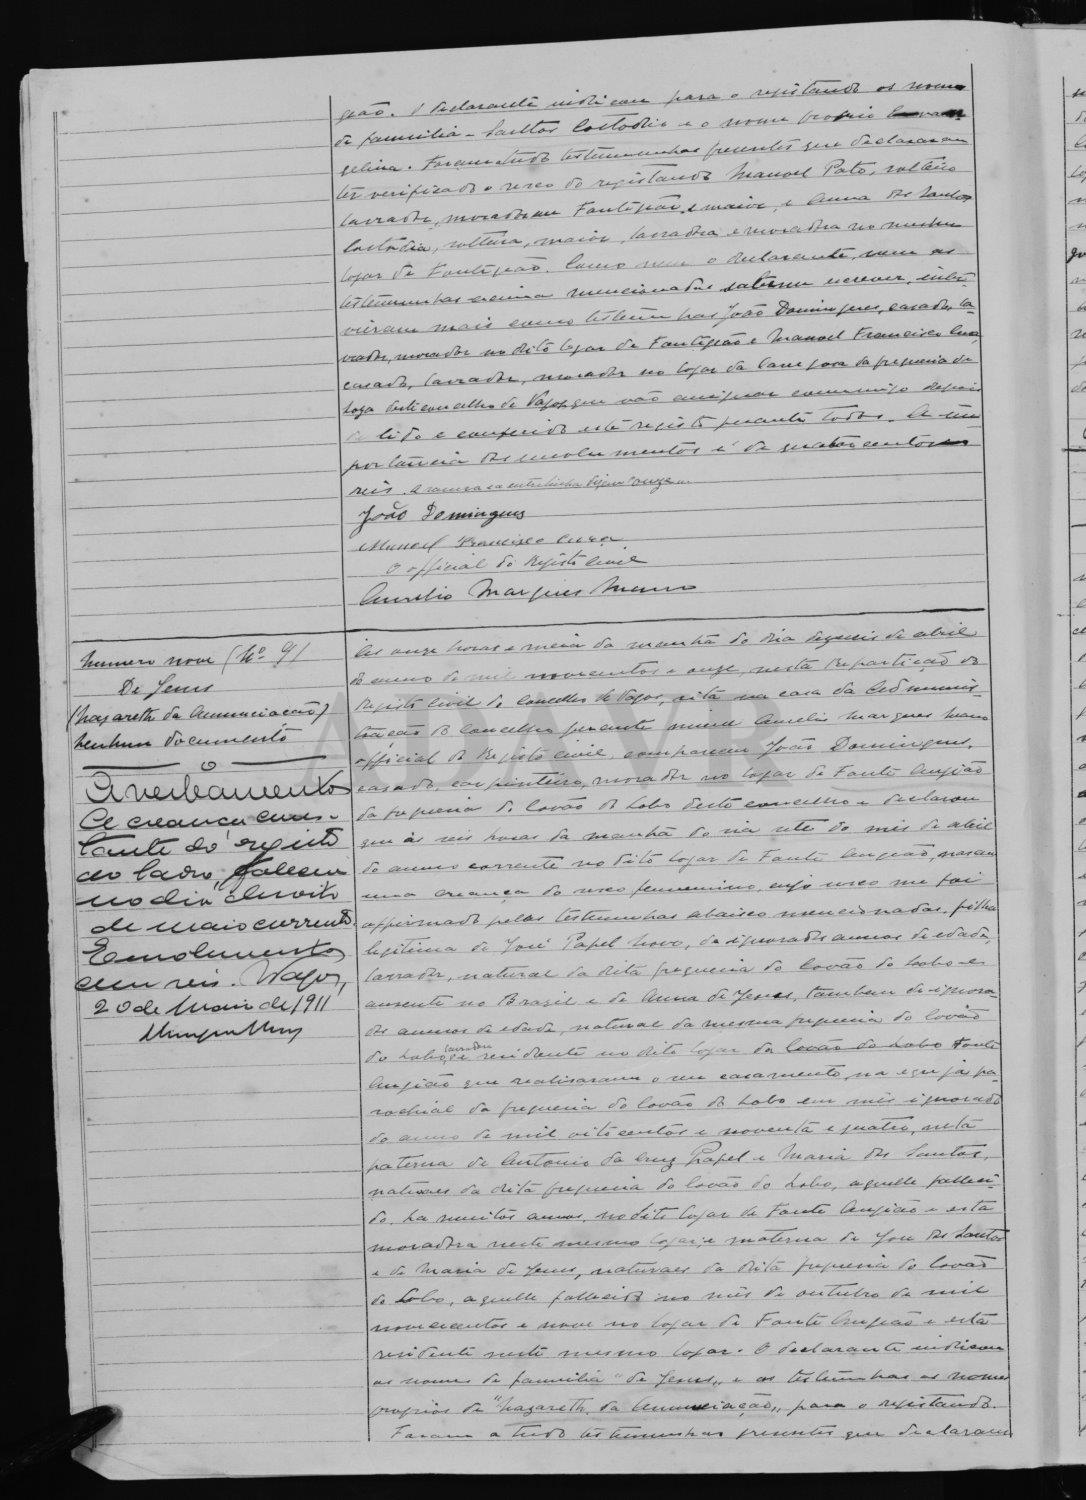 ção. O declarante indicou para o registando os nomes
de familia - Santos Custodio e o nome proprio Evan
gelina. Foram a tudo testemunhas presentes que declararam
ter verificado o sexo do registando Manoel Pato, solteiro
lavrador, morador em Fontigião, e maior, e Anna dos Santos
Custodia, solteira, maior, lavradora e moradora no mesmo
logar de Fontigião. Como nem o declarante, nem as
testemunhas acima mencionadas saibam escrever, inter-
vieram mais como testemunhas João Domingues, casado, la-
vrador, morador no dito logar de Fontigião e Manoel Francisco
casado, lavrador, morador no logar da da freguesia de
Soza deste concelho de Vagos, que vão assignar commigo depois
de lido e conferido este registo perante todos. A im
portancia dos emolumentos é de quatrocentos
reis. A rasura e a entrelinha dizem onze
João Domingues
Manoel Francisco
O official do Registo Civil
Aurelio Marques Mano
Numero nove (Nº 9)
De Jesus
(Nazareth da Annunciacão)
Nenhum documento
Averbamento
A creança cons-
tante do registo
ao lado, falleceu
no dia dezoito
de maio corrente.
Emolumentos
cem reis. Vagos,
20 de Maio de 1911
Ás onze horas e meia da manhã do dia dezeseis de abril
do anno de mil novecentos e onze, nesta Repartição do
Registo Civil do Concelho de Vagos, sita na casa da Adminis-
tração do Concelho perante mim Aurelio Marques Mano
official do Registo civil, compareceu João Domingues,
casado, carpinteiro, morador no logar de Fonte Angião
da freguesia de Covão do Lobo deste concelho e declarou
que ás seis horas da manhã do dia sete do mês de abril
do anno corrente no dito logar de Fonte Angião, nasceu
uma creança do sexo femenino, cujo sexo me foi
affirmado pelas testemunhas abaixo mencionadas, filha
legitima de José Papel Novo, de ignorados annos de edade,
lavrador, natural da dita freguesia do Covão do Lobo e
ausente no Brazil e de Anna de Jesus, tambem de ignora-
dos annos de edade, natural da mesma freguesia do Covão
do Lobo, lavradora e residente no dito logar do Covão do Lobo Fonte
Angião que realisaram o seu casamento na egreja pa-
rochial da freguesia do Covão do Lobo em mês ignorado
do anno de mil oitocentos e noventa e quatro, neta
paterna de Antonio da Cruz Papel e Maria dos Santos,
naturaes da dita freguesia do Covão do Lobo, aquelle falleci-
do, ha muitos annos, no dito logar de Fonte Angião e esta
moradora neste mesmo logar; e materna de José dos Santos
e de Maria de Jesus, naturaes da dita freguesia do Covão
do Lobo, aquelle fallecido no mês de outubro de mil
novecentos e nove no logar de Fonte Angião e esta
residente neste mesmo logar. O declarante indicou
os nomes de familia "de Jesus" e as testemunhas os nomes
proprios de "Nazareth da Annunciação" para o registando.
Foram a tudo testemunhas presentes que declararam
ADAVR